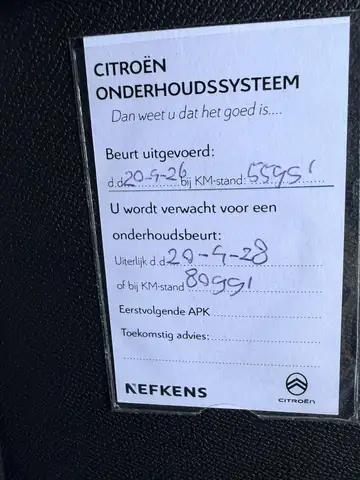 CITROËN
ONDERHOUDSSYSTEEM
Dan weet u dat het goed is....
Beurt uitgevoerd:
d.d. 20-4-26 bij KM-stand: 55951
U wordt verwacht voor een
onderhoudsbeurt:
Uiterlijk d.d. 20-4-28
of bij KM-stand 80991
Eerstvolgende APK
Toekomstig advies:
NEFKENS
CITROËN